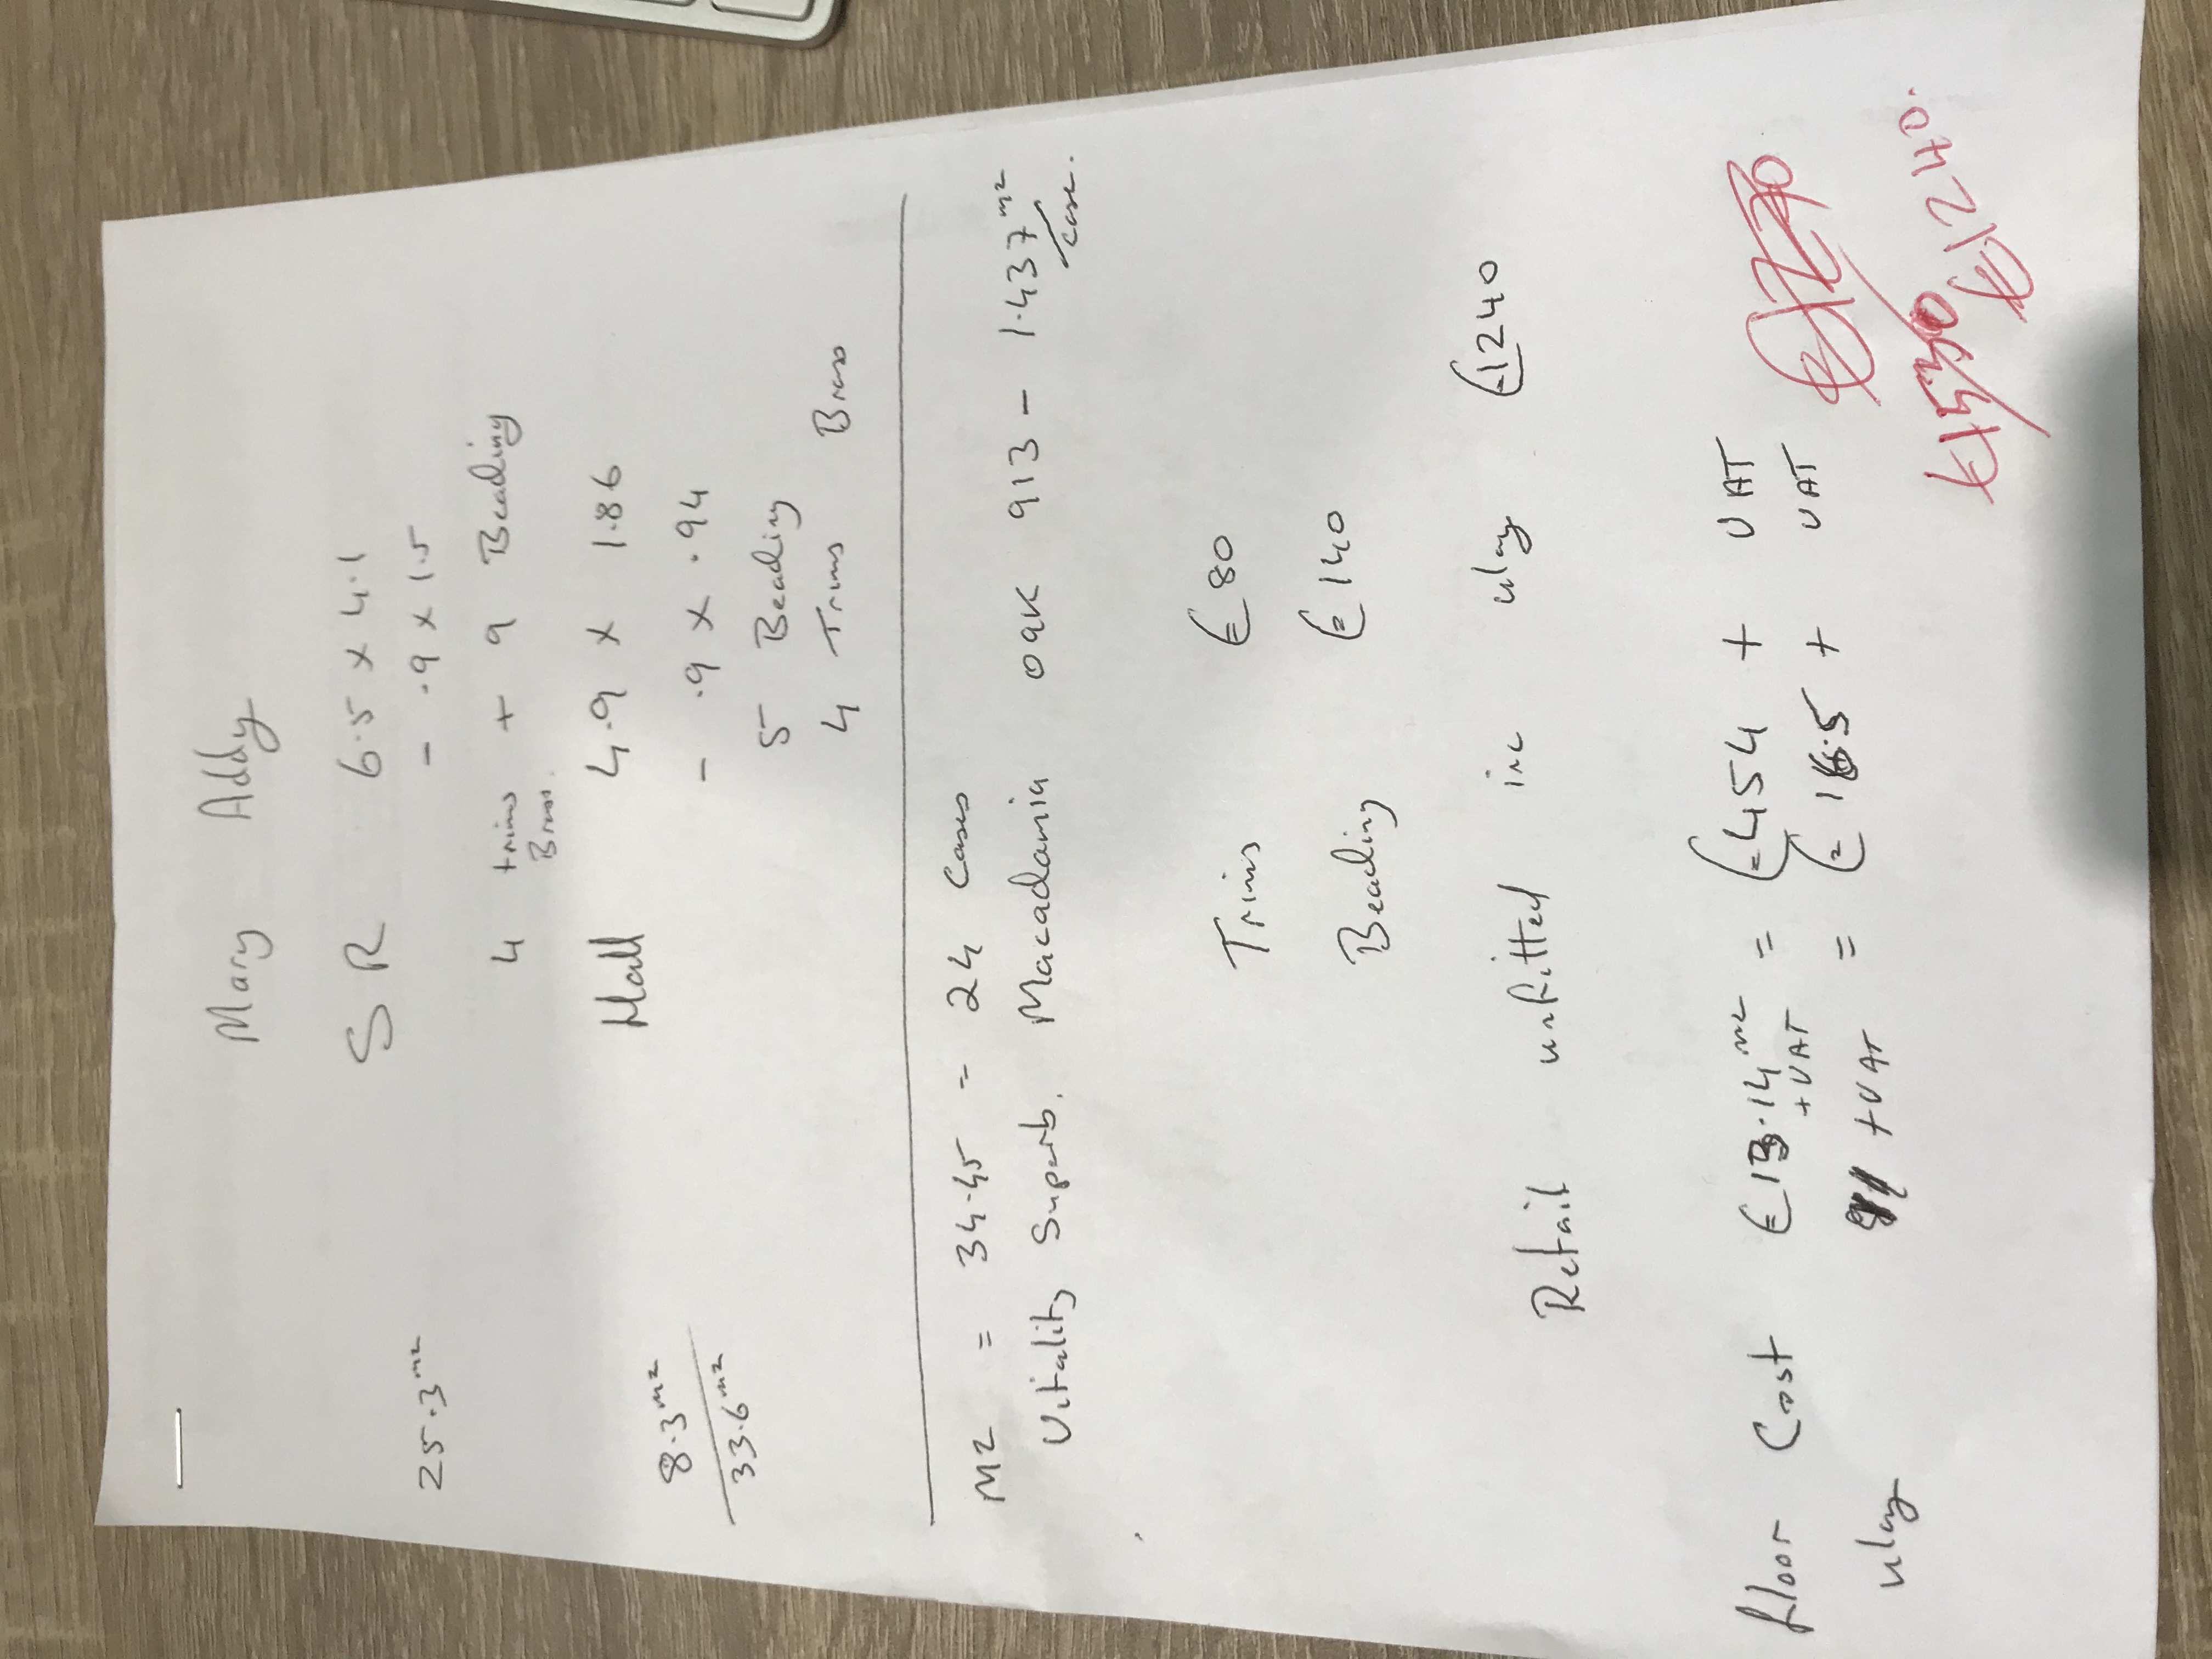 Mary Addy
SR 6.5 x 4.1
25.3m² - .9 x 1.5
4 trims + 9 Beading
Brass.
Hall 4.9 x 1.86
8.3m² - .9 x .94
33.6m²
5 Beading
4 Trims Brass
M2 = 34.45 = 24 Cases
Vitality Superb. Macadamia oak 913 - 1.437m²/case.
Trims £80
Beading £140
Retail unfitted inc ulay £1240
floor Cost £13.14m² +VAT = £454 + VAT
ulay +VAT = + VAT
£1240.